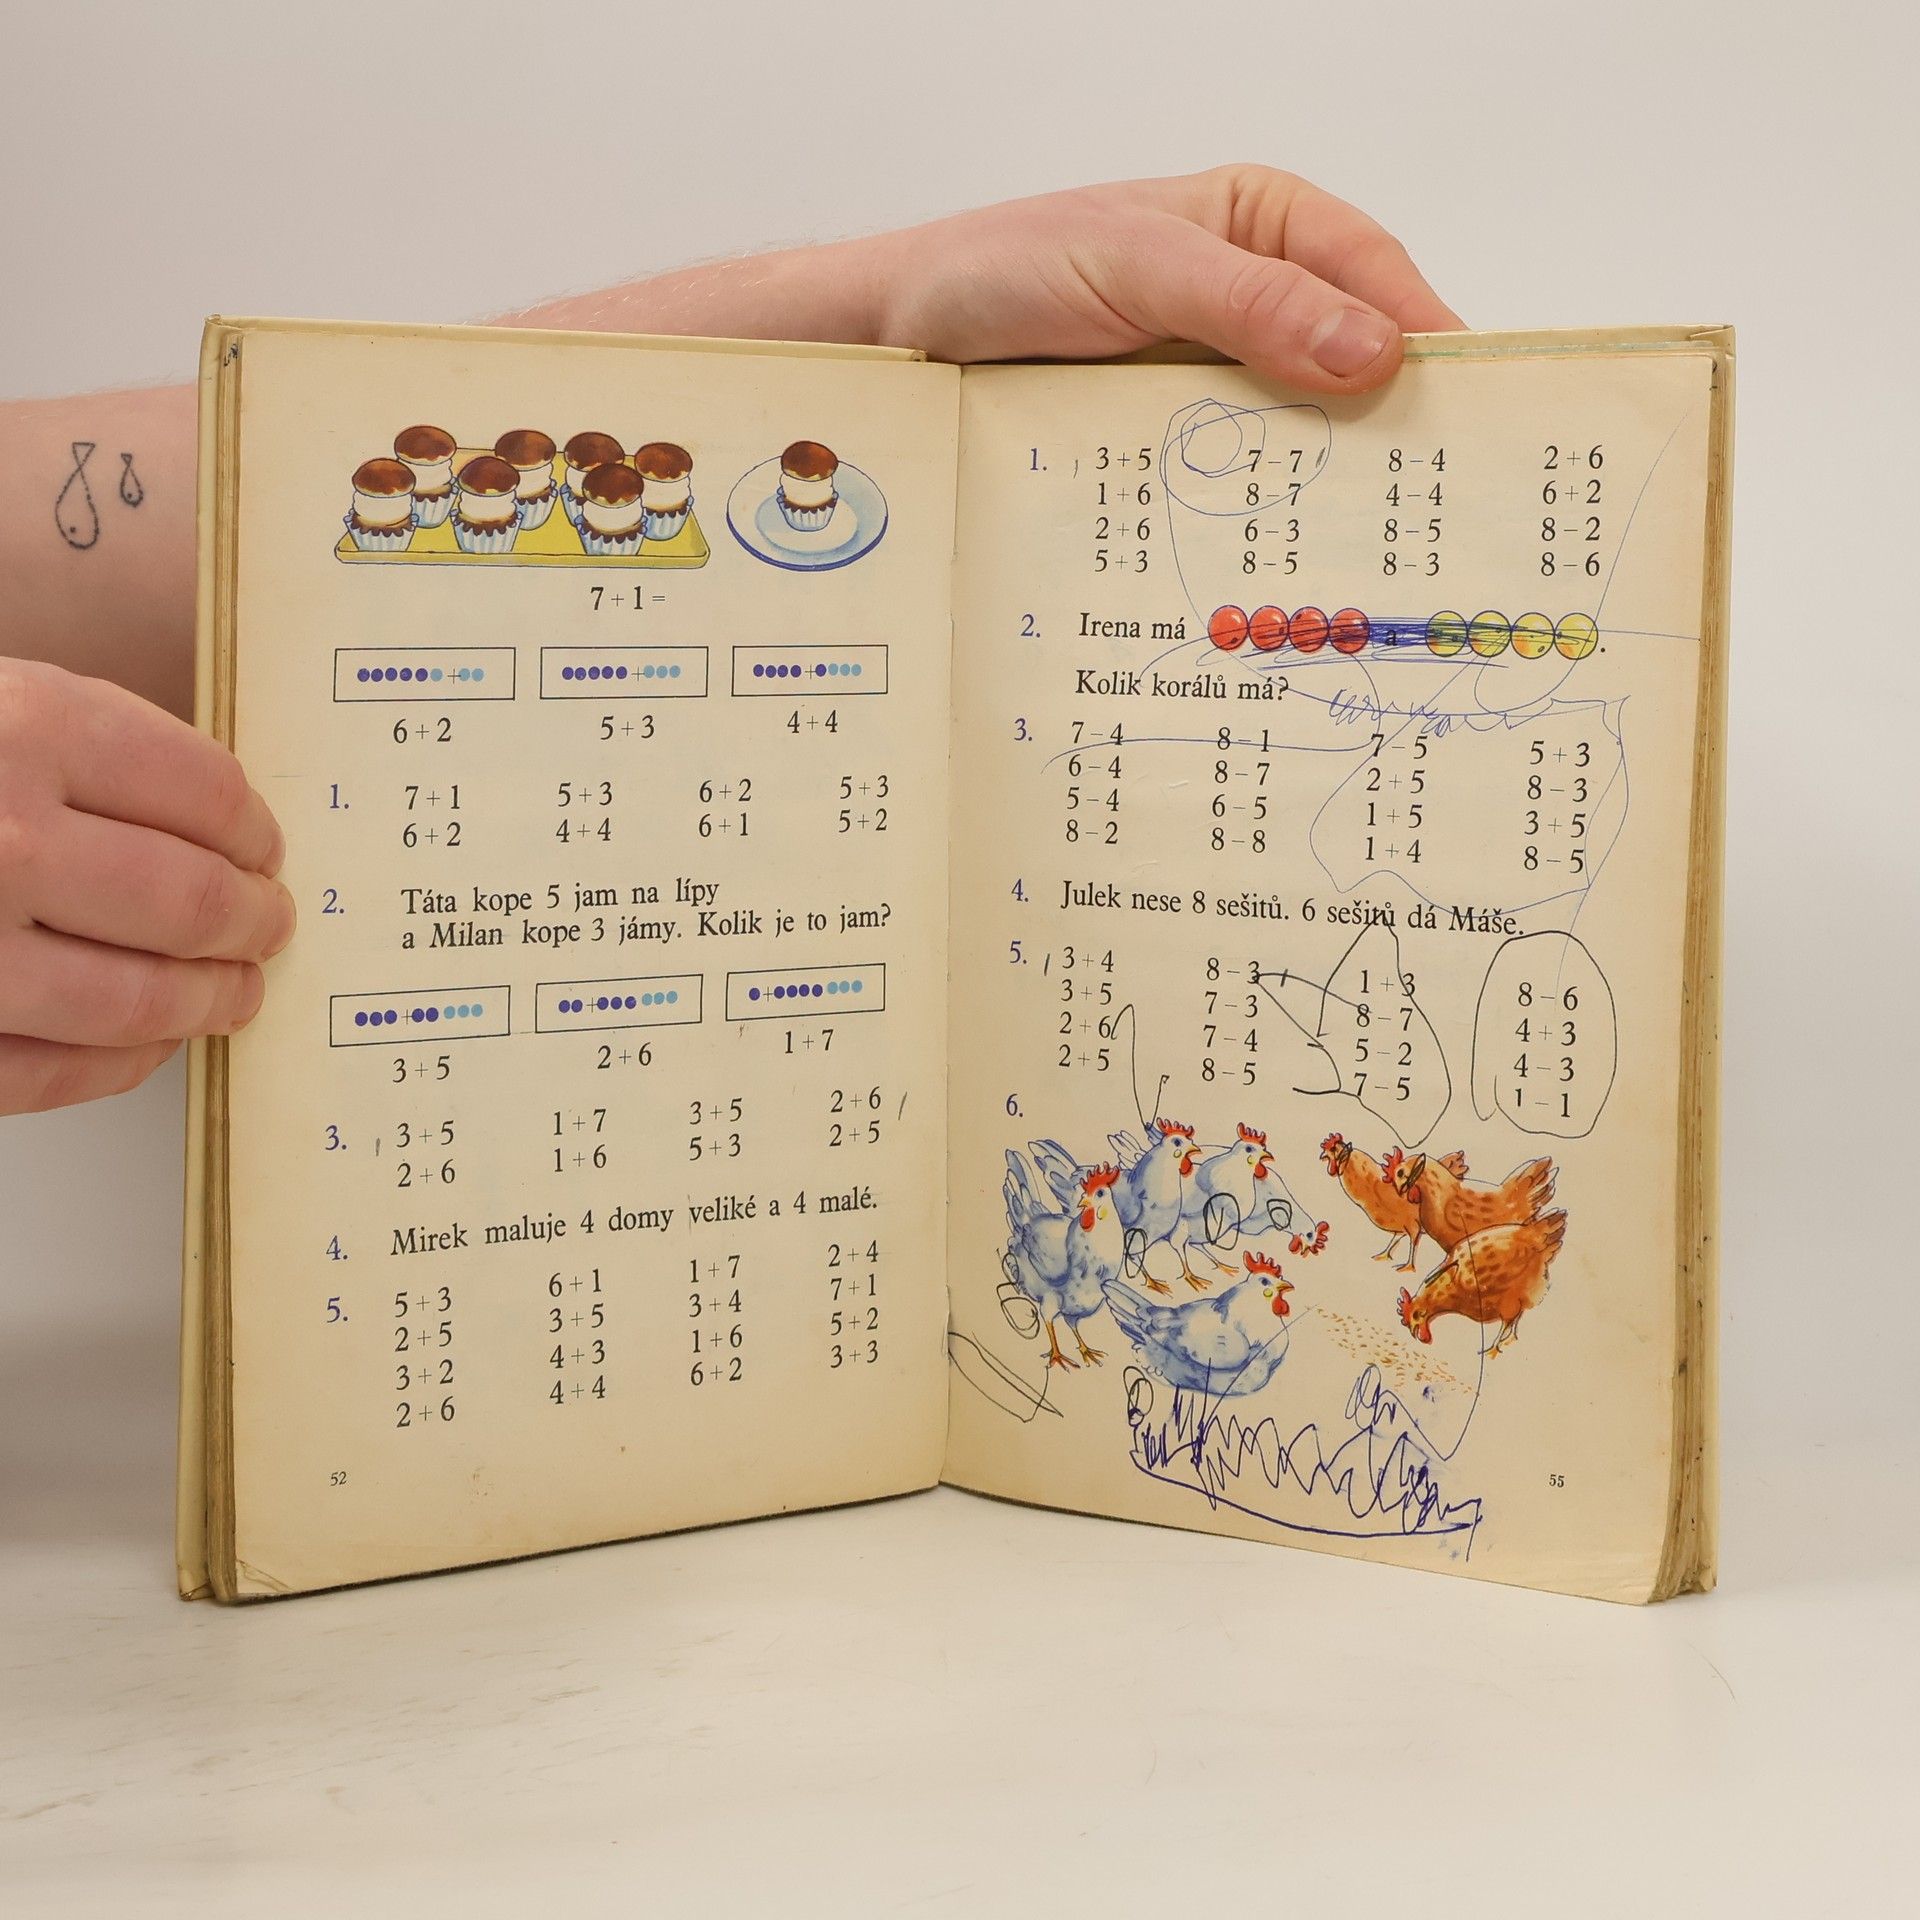 7 + 1 =
6 + 2 5 + 3 4 + 4
1. 7 + 1 5 + 3 6 + 2 5 + 3
6 + 2 4 + 4 6 + 1 5 + 2
2. Táta kope 5 jam na lípy
a Milan kope 3 jámy. Kolik je to jam?
3 + 5 2 + 6 1 + 7
3. 3 + 5 1 + 7 3 + 5 2 + 6
2 + 6 1 + 6 5 + 3 2 + 5
4. Mirek maluje 4 domy veliké a 4 malé.
5. 5 + 3 6 + 1 1 + 7 2 + 4
2 + 5 3 + 5 3 + 4 7 + 1
3 + 2 4 + 3 1 + 6 5 + 2
2 + 6 4 + 4 6 + 2 3 + 3
52
1. 3 + 5 7 – 7 8 – 4 2 + 6
1 + 6 8 – 7 4 – 4 6 + 2
2 + 6 6 – 3 8 – 5 8 – 2
5 + 3 8 – 5 8 – 3 8 – 6
2. Irena má a .
Kolik korálů má?
3. 7 – 4 8 – 1 7 – 5 5 + 3
6 – 4 8 – 7 2 + 5 8 – 3
5 – 4 6 – 5 1 + 5 3 + 5
8 – 2 8 – 8 1 + 4 8 – 5
4. Julek nese 8 sešitů. 6 sešitů dá Máše.
5. 3 + 4 8 – 3 1 + 3 8 – 6
3 + 5 7 – 3 8 – 7 4 + 3
2 + 6 7 – 4 5 – 2 4 – 3
2 + 5 8 – 5 7 – 5 1 – 1
6.
55